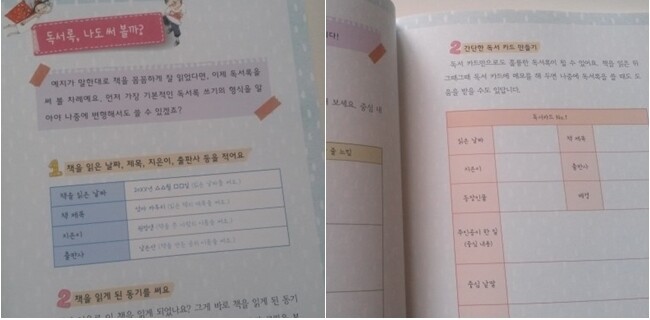 독서록, 나도 써 볼까?
여지가 말한대로 책을 꼼꼼하게 잘 읽었다면, 이제 독서록을
써 볼 차례예요. 먼저 가장 기본적인 독서록 쓰기의 형식을 알
아야 나중에 변형해서도 쓸 수 있겠죠?
1 책을 읽은 날짜, 제목, 지은이, 출판사 등을 적어요.
책을 읽은 날짜
책 제목
지은이
출판사
2 책을 읽게 된 동기를 써요
이 책을 읽게 되었나요? 그게 바로 책을 읽게 된 동기
보세요. 중심 내
2 간단한 독서 카드 만들기
독서 카드만으로도 훌륭한 독서록이 될 수 있어요. 책을 읽은 뒤
그때그때 독서 카드에 메모를 해 두면 나중에 독서록을 쓸 때도 도
움을 받을 수도 있답니다.
독서카드 No.1
읽은 날짜
책 제목
지은이
출판사
등장인물
배경
주인공이 한 일
(중심 내용)
중심 낱말